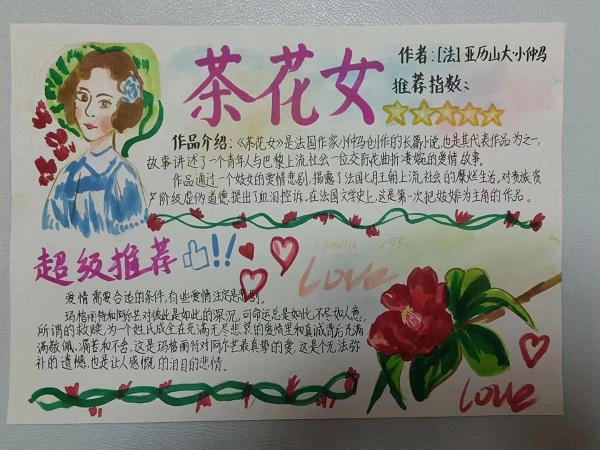 茶花女
作者:[法]亚历山大·小仲马
推荐指数:
作品介绍:《茶花女》是法国作家小仲马创作的长篇小说,也是其代表作品为之一,
故事讲述了一个青年人与巴黎上流社会一位交际花曲折凄婉的爱情故事。
作品通过一个妓女的爱情悲剧,揭露了法国七月王朝上流社会的糜烂生活,对贵族资
产阶级虚伪道德提出了血泪控诉。在法国文学史上,这是第一次把妓女作为主角的作品。
超级推荐
!!
Camellia 2023.
Love
爱情需要合适的条件,有些爱情注定是悲剧。
玛格丽特和阿尔芒对彼此是如此的深沉,可命运总是如此不尽如人意,
所谓的救赎,
满敬佩、痛苦和不舍,这是玛格丽特对阿尔芒最真挚的爱,这是个无法弥
补的遗憾,也是让人感慨的泪目的悲情。
Love